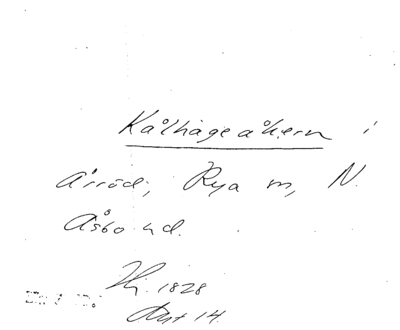 Kålhageåkern i
Årröd, Rya sn, N.
Åsbo hd.
Hy. 1828
Akt 14.